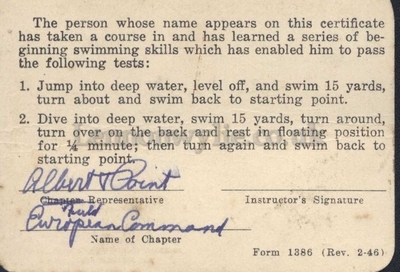 The person whose name appears on this certificate
has taken a course in and has learned a series of be-
ginning swimming skills which has enabled him to pass
the following tests:
1. Jump into deep water, level off, and swim 15 yards,
turn about and swim back to starting point.
2. Dive into deep water, swim 15 yards, turn around,
turn over on the back and rest in floating position
for ¼ minute; then turn again and swim back to
starting point.
Albert Point
Chapter Representative Instructor's Signature
Field
European Command
Name of Chapter
Form 1386 (Rev. 2-46)